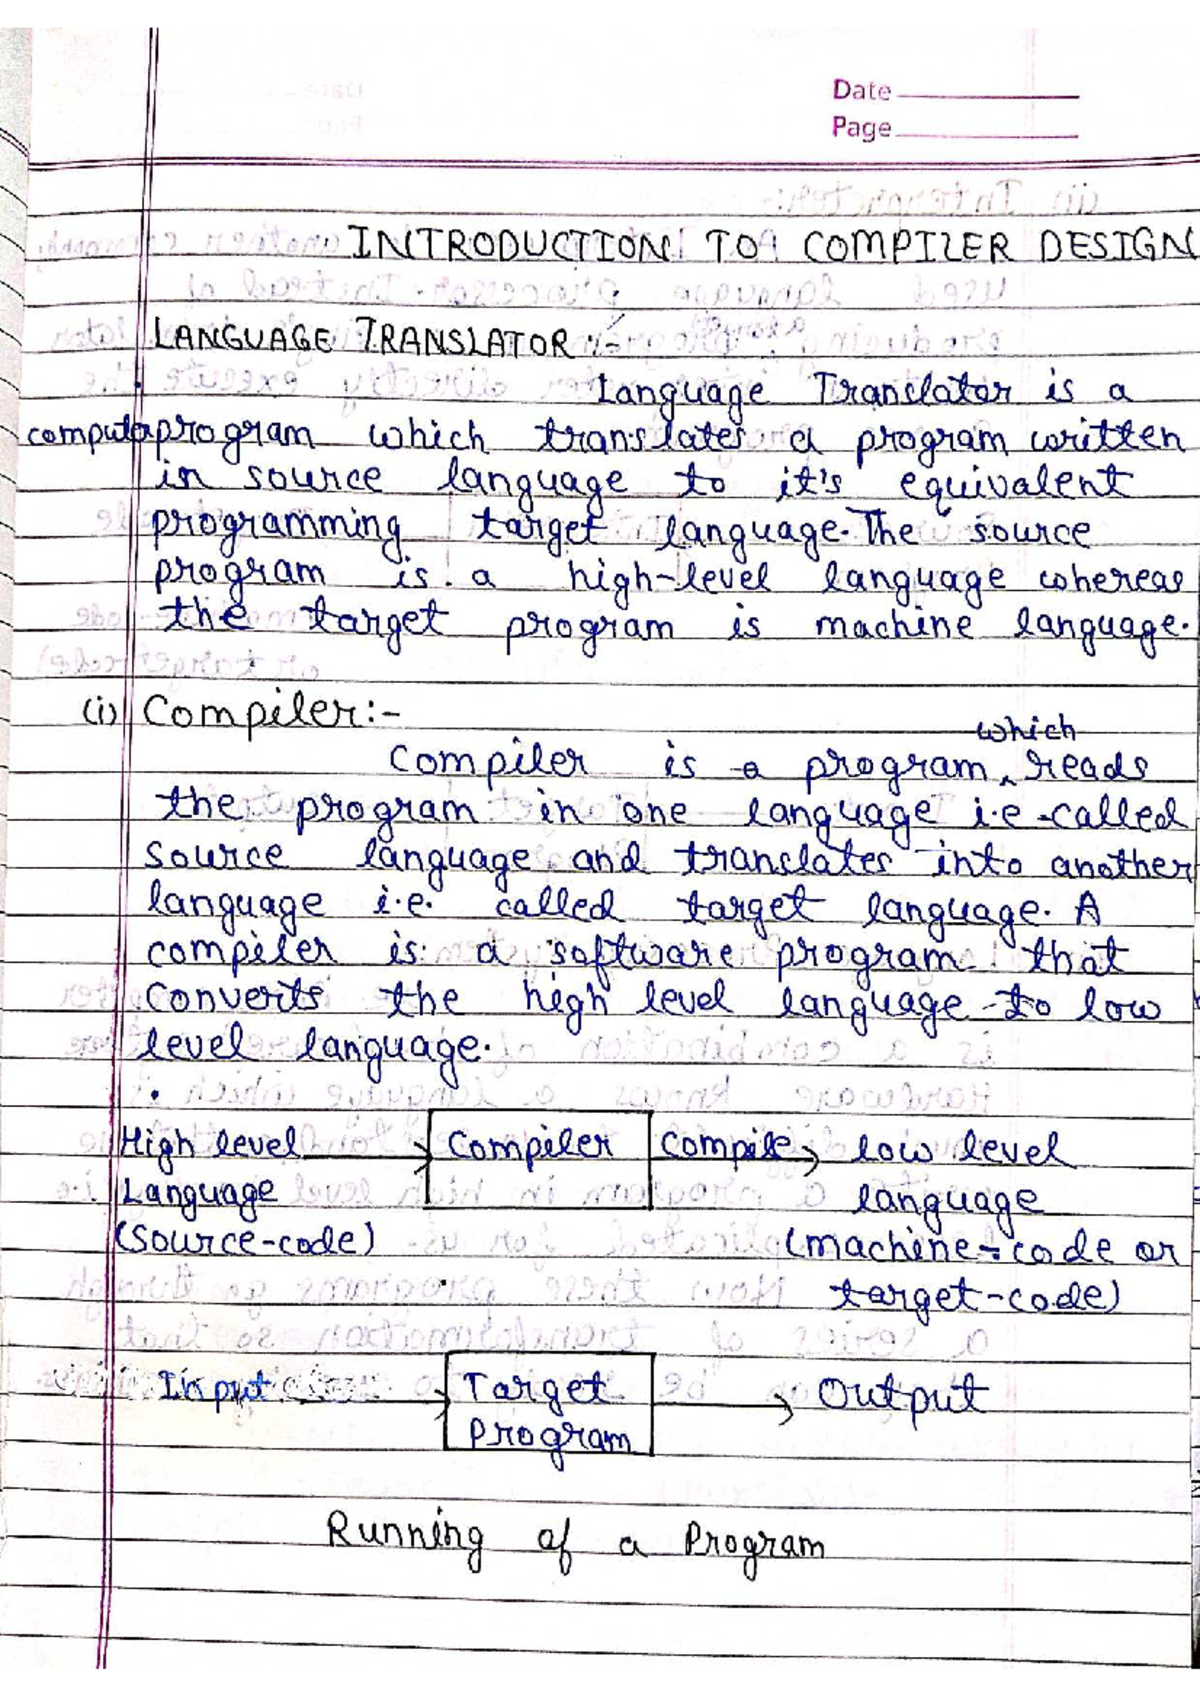 Date
Page
INTRODUCTION TO COMPILER DESIGN
LANGUAGE TRANSLATOR :-
Language Translator is a
computer program which translates a program written
in source language to it's equivalent
programming target language. The source
program is a high-level language whereas
the target program is machine language.
(i) Compiler:-
which
Compiler is a program ^ reads
the program in one language i.e called
source language and translates into another
language i.e. called target language. A
compiler is a software program that
converts the high level language to low
level language.
High level Compiler Compile low level
Language language
(source-code) (machine-code or
target-code)
Input Target Output
Program
Running of a Program